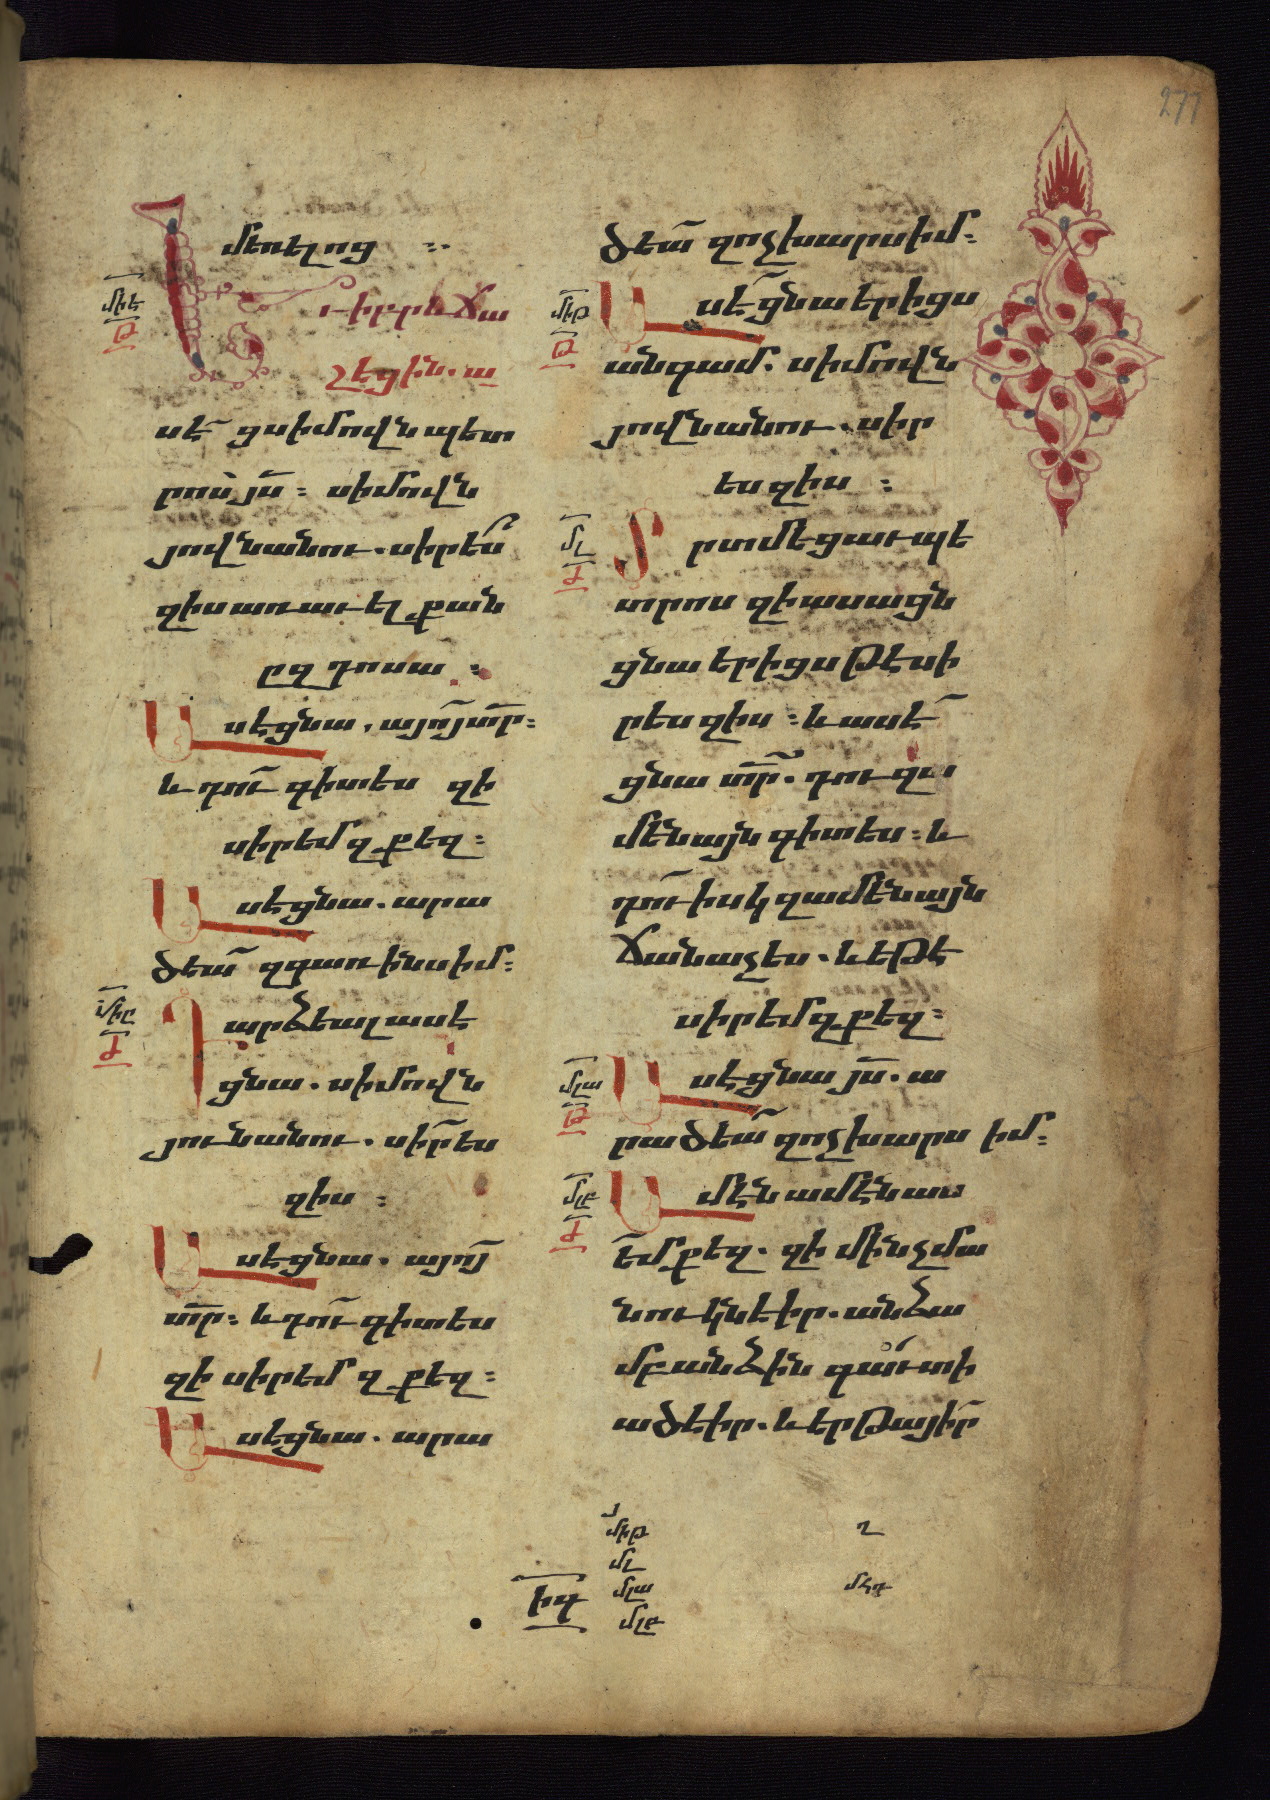 277
մեռելոց :.
Եւ իբրև ճա
շեցին. ա
սէ ցսիմովն պետ
րոս յս՟ : սիմովն
յովնանու. սիրե՞ս
զիս առաւել քան
ըզդոսա :
Ասէ ցնա. այո՛ տր՟ :
և դու գիտես զի
սիրեմ զքեզ :
Ասէ ցնա. արա
ծեա՛ զգառինս իմ :
Դարձեալ ասէ
ցնա. սիմովն
յունանու. սիրես
զիս :
Ասէ ցնա. այո՛
տր՟ : և դու գիտես
զի սիրեմ զքեզ :
Ասէ ցնա. արա
միե
թ
միը
ժ
ծեա՛ զոչխարս իմ :
Ասէ ցնա երիցս
անգամ. սիմովն
յովնանու. սիր
ես զիս :
Տրտմեցաւ պե
տրոս զի ասաց ն
ցնա երիցս թէ սի
րես զիս : և ասէ
ցնա տր՟. դու զա
մենայն գիտես : և
դու իսկ զամենայն
ճանաչես. և եթէ
սիրեմ զքեզ :
Ասէ ցնա յս՟. ա
րածեա՛ զոչխարս իմ :
Ամէն ամէն աս
եմ քեզ. զի մինչ մա
նուկն էիր. անձա
մբ անձին գաւտի
ածէիր. և երթայիր
միթ
թ
մլ
ժ
մլա
թ
մլբ
ժ
իգ
յ
միթ
մլ
մլա
մլբ
ղ
մհդ